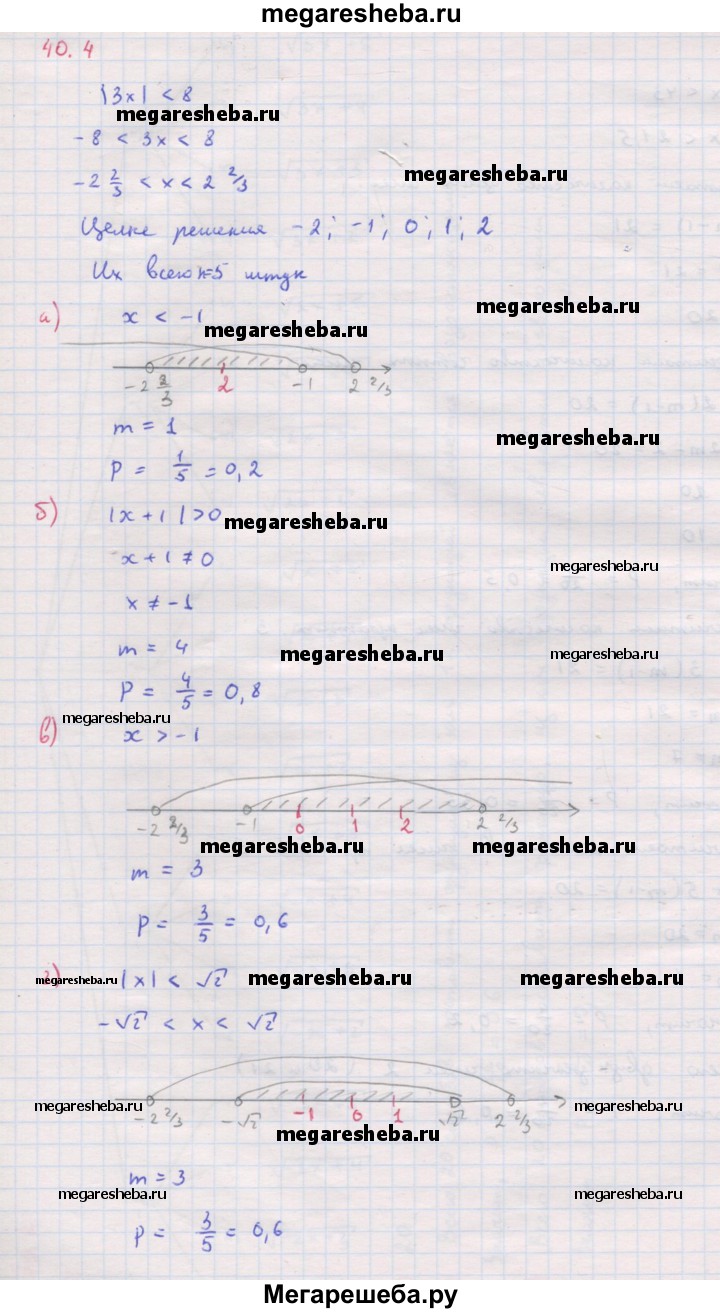 megaresheba.ru
40.4
|3x| < 8
megaresheba.ru
-8 < 3x < 8
megaresheba.ru
-2 2/3 < x < 2 2/3
Целые решения -2; -1; 0; 1; 2
Их всего n=5 штук
megaresheba.ru
а) x < -1
megaresheba.ru
-2 2/3 2 -1 2 2/3
m = 1
megaresheba.ru
P = 1/5 = 0,2
б) |x + 1| > 0
megaresheba.ru
x + 1 ≠ 0
megaresheba.ru
x ≠ -1
m = 4
megaresheba.ru
P = 4/5 = 0,8
megaresheba.ru
в) x > -1
-2 2/3 -1 0 1 2 2 2/3
megaresheba.ru megaresheba.ru
m = 3
P = 3/5 = 0,6
г) |x| < √2
megaresheba.ru megaresheba.ru megaresheba.ru
-√2 < x < √2
-2 2/3 -√2 -1 0 1 √2 2 2/3
megaresheba.ru megaresheba.ru
megaresheba.ru
m = 3
megaresheba.ru megaresheba.ru
P = 3/5 = 0,6
Мегарешеба.ру